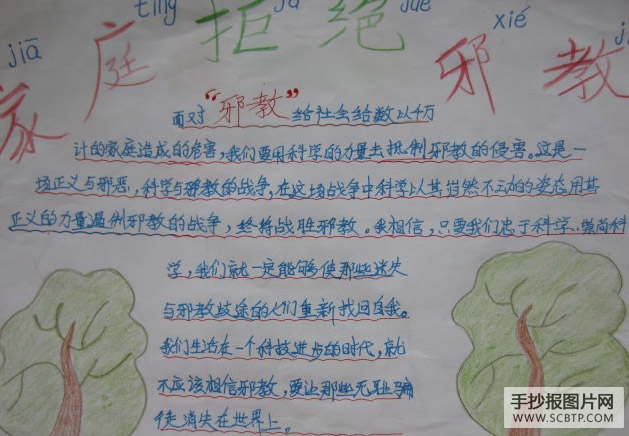 jiā tíng jù jué xié j
家庭拒绝邪教
面对“邪教”给社会给数以千万
计的家庭造成的危害，我们要用科学的力量去抵制邪教的侵害。这是一
场正义与邪恶，科学与邪教的战争，在这场战争中科学以其岿然不动的姿态用其
正义的力量遏制邪教的战争，终将战胜邪教。我相信，只要我们忠于科学、崇尚科
学，我们就一定能够使那些迷失
与邪教歧途的人们重新找回自我。
我们生活在一个科技进步的时代，就
不应该相信邪教，要让那些无耻骗
徒消失在世界上。
手抄报图片网
WWW.SCBTP.COM